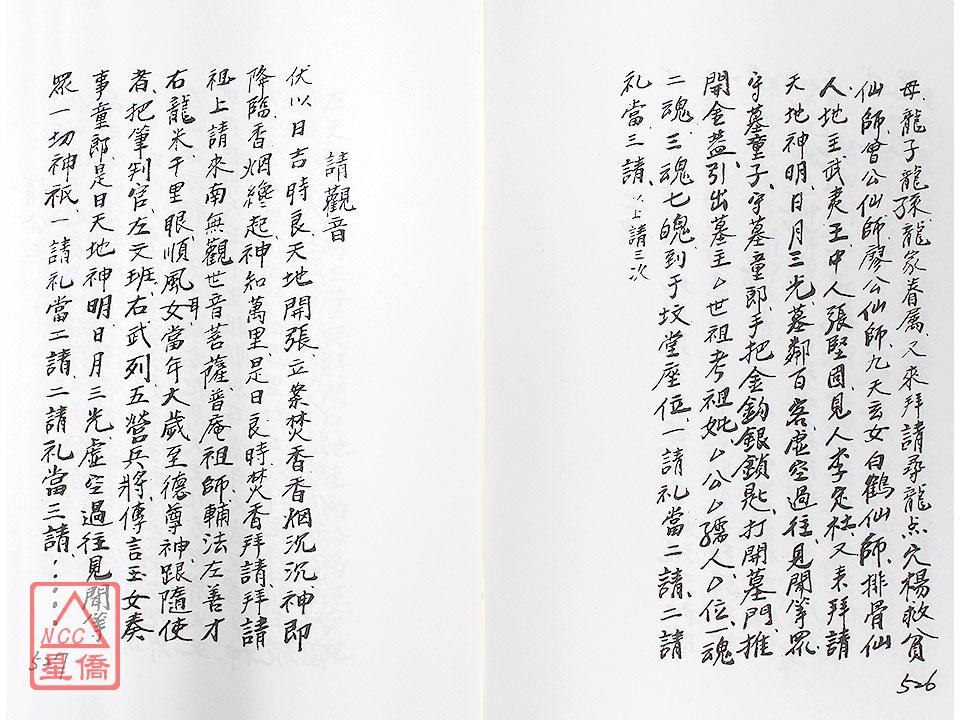 母、龍子龍孫、龍家眷属、又來拜請尋龍点穴楊救貧
仙師、曾公仙師、廖公仙師、九天玄女白鶴仙師、排骨仙
人、地主武夷王、中人張堅固、見人李定社、又來拜請
天地神明、日月三光、墓鄰百客、虛空過往、見聞等眾、
守墓童子、守墓童郎、手把金鈎銀鎖匙、打開墓門、推
開金蓋、引出墓主厶世祖考祖妣厶公厶孺人厶位、一魂
二魂、三魂七魄、到于坟堂座位、一請礼當二請、二請
礼當三請、以上請三次
526
請觀音
伏以日吉時良、天地開張、立案焚香、香烟沉沉、神即
降臨、香烟纔起、神知萬里、是日良時、焚香拜請、拜請
祖上請來南無觀世音菩薩、普庵祖師、輔法左善才
右龍米、千里眼、順風耳、女當年大歲至德尊神、跟隨使
者、把筆判官、左文班、右武列、五營兵將、傳言玉女、奏
事童郎、是日天地神明、日月三光、虛空過往、見聞等
眾、一切神祇、一請礼當二請、二請礼當三請、：：：
527
NCC
星僑